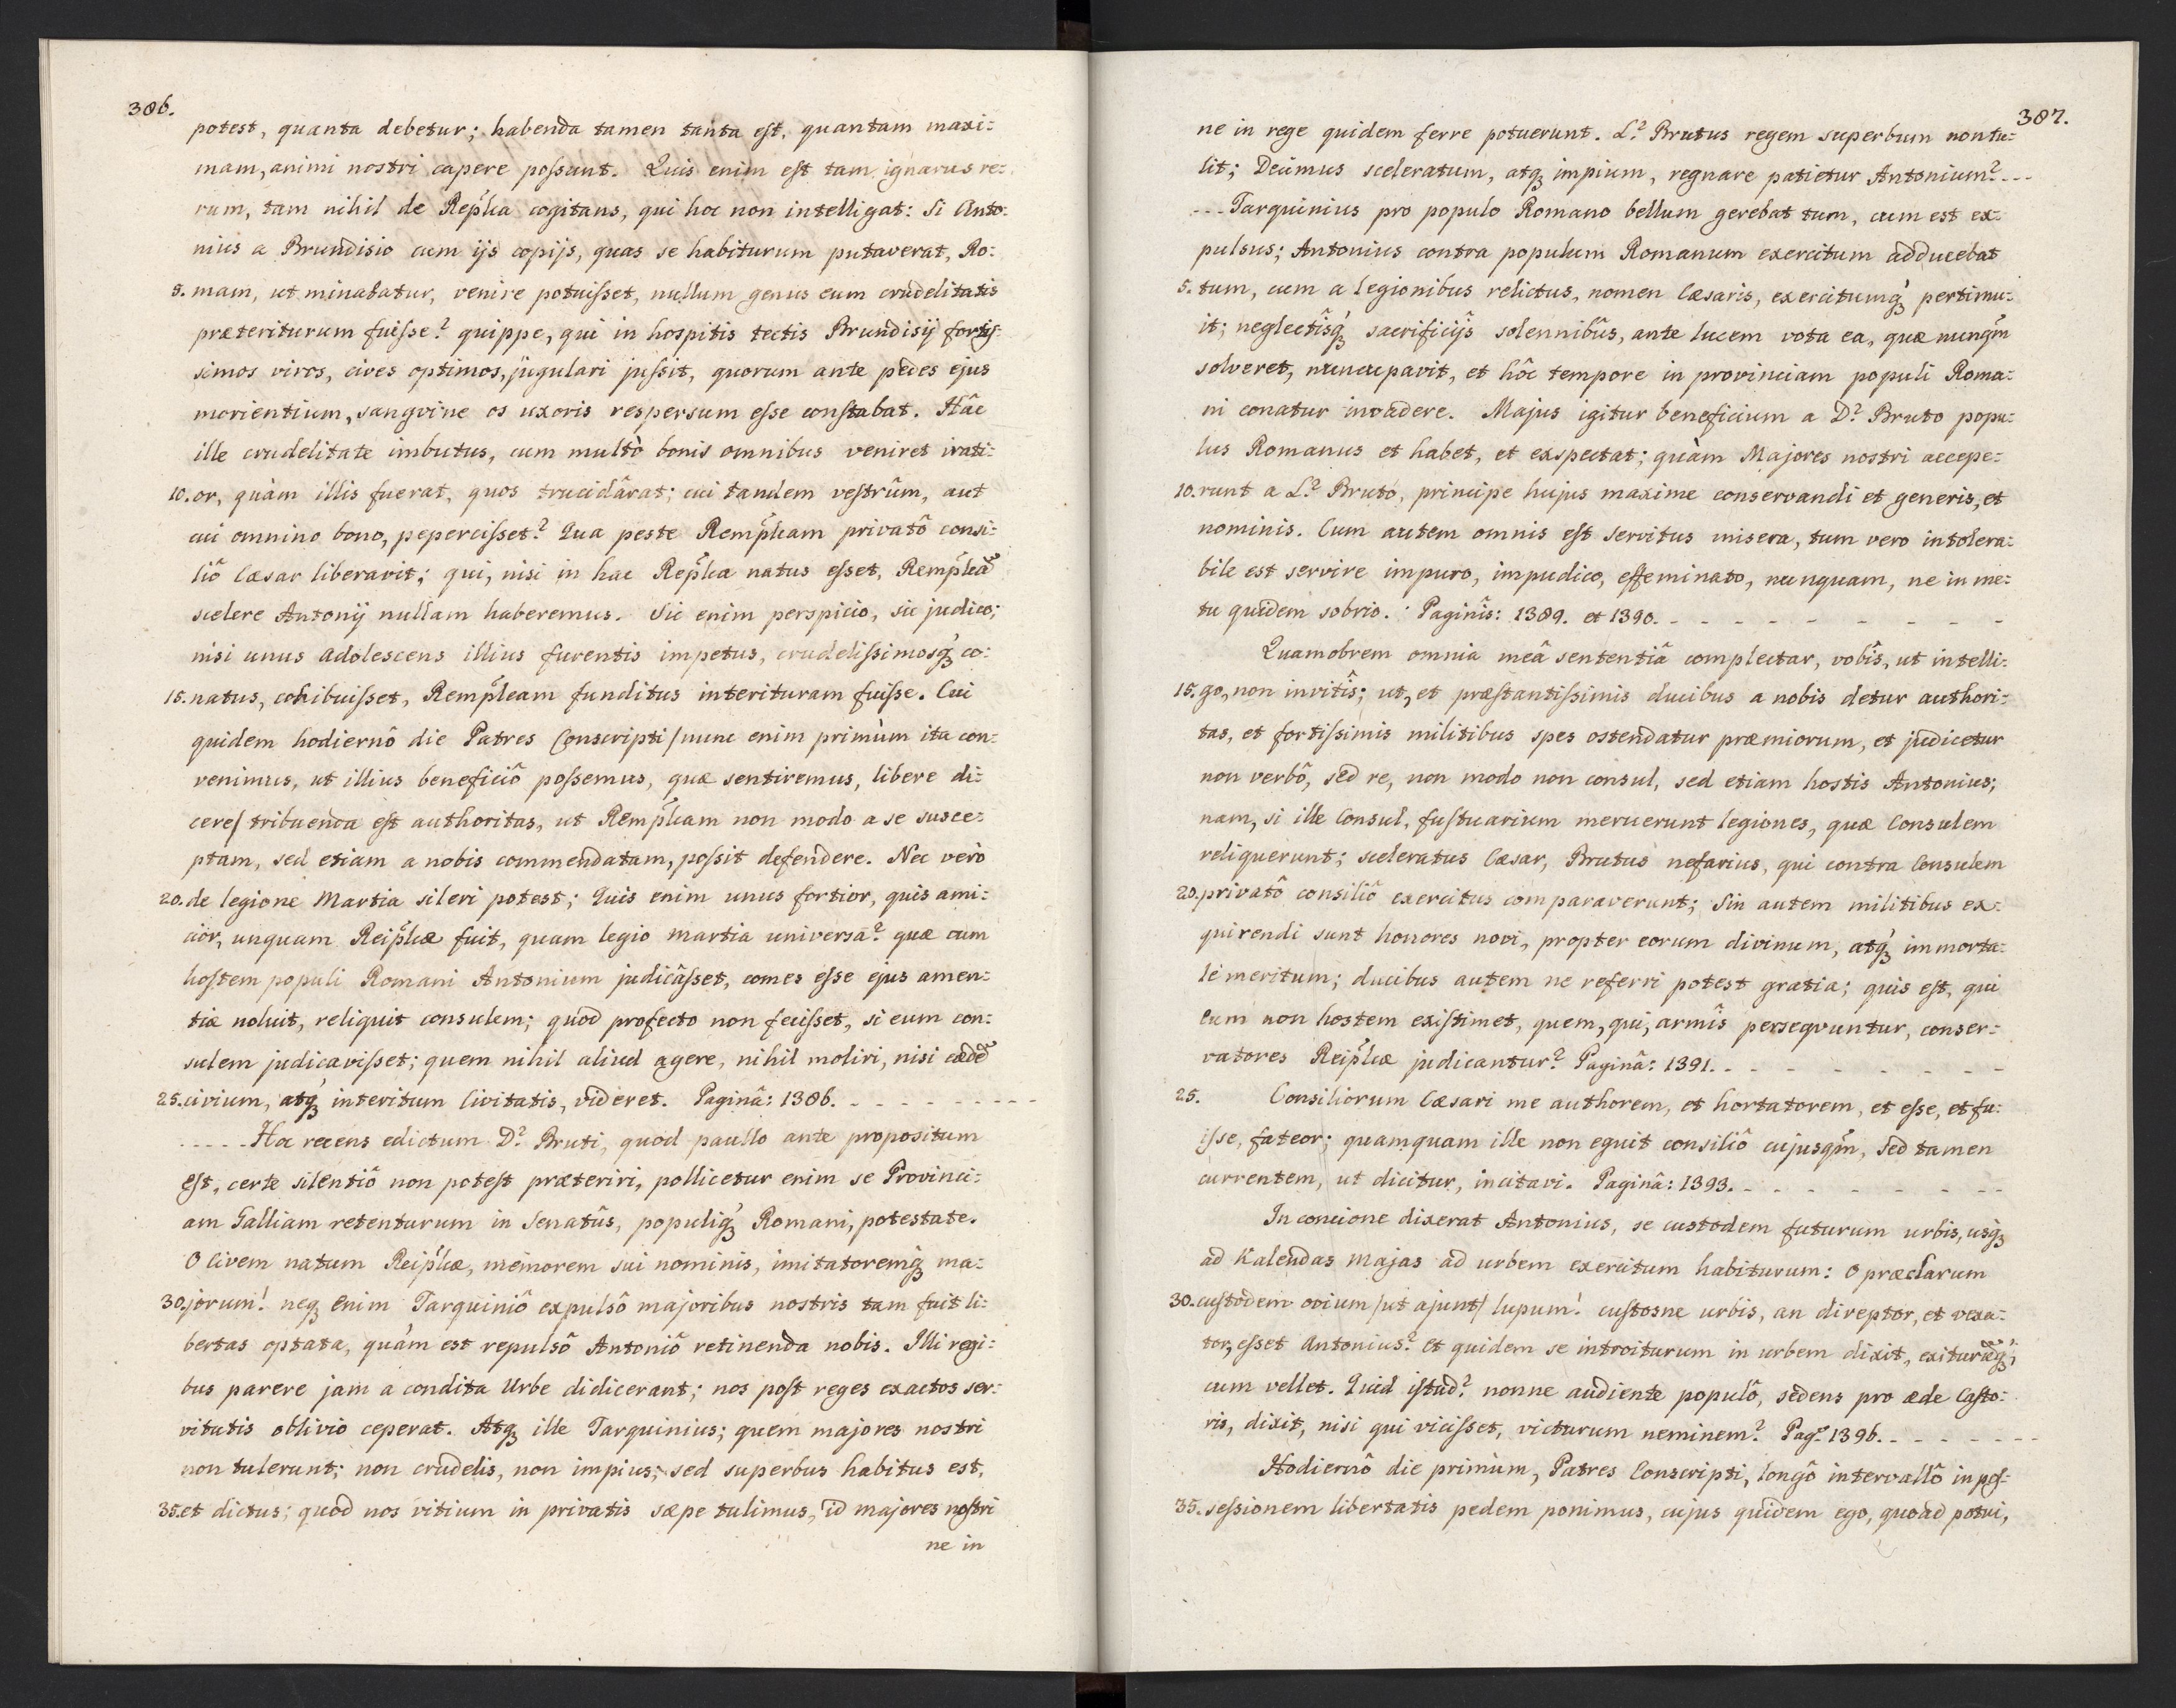 386.
potest, quanta debetur; habenda tamen tanta est, quantam maxi:
mam, animi nostri capere possunt. Quis enim est tam ignarus re:
rum, tam nihil de Repl̃ca cogitans, qui hoc non intelligat: Si Anto:
nius a Brundisio cum ijs copijs, quas se habiturum putaverat, Ro:
5. mam, ut minabatur, venire potuisset, nullum genus eum crudelitatis
præteriturum fuisse? quippe, qui in hospitis tectis Brundisij fortis:
simos viros, cives optimos, jugulari jussit, quorum ante pedes ejus
morientium, sangvine os uxoris respersum esse constabat. Hâc
ille crudelitate imbutus, cum multò bonis omnibus veniret irati:
10. or, quàm illis fuerat, quos trucidârat; cui tandem vestrûm, aut
cui omnino bono, pepercisset? Qua peste Rempl̃cam privatô consi:
liô Cæsar liberavit; qui, nisi in hac Repl̃ca natus esset, Rempl̃cã
scelere Antonij nullam haberemus. Sic enim perspicio, sic judico;
nisi unus adolescens illius furentis impetus, crudelissimosq́ co:
15. natus, cohibuisset, Rempl̃cam funditus interituram fuisse. Cui
quidem hodiernô die Patres Conscripti /nunc enim primùm ita con:
venimus, ut illius beneficiô possemus, quæ sentiremus, libere di:
cere/ tribuenda est authoritas, ut Rempl̃cam non modo a se susce:
ptam, sed etiam a nobis commendatam, possit defendere. Nec verò
20. de legione Martia sileri potest; Quis enim unus fortior, quis ami:
cior, unquam Reipl̃cæ fuit, quam legio martia universa? quæ cum
hostem populi Romani Antonium judicâsset, comes esse ejus amen:
tiæ noluit, reliquit consulem; quod profecto non fecisset, si eum con:
sulem judicavisset; quem nihil aliud agere, nihil moliri, nisi cædẽ
25. civium, atq́ interitum Civitatis, videret. Paginâ: 1386. - - - - - - - - -
- - - - - Hoc recens edictum D? Bruti, quod paullo ante propositum
est, certe silentiô non potest præteriri, pollicetur enim se Provinci:
am Galliam retenturum in Senatûs, populiq́ Romani, potestate.
O Civem natum Reipl̃cæ, memorem sui nominis, imitatoremq́ ma:
30. jorum! neq enim Tarquiniô expulsô majoribus nostris tam fuit li:
bertas optata, quám est repulsô Antoniô retinenda nobis. Illi regi:
bus parere jam a condita Urbe didicerant; nos post reges exactos ser:
vitutis oblivio ceperat. Atq ille Tarquinius; quem majores nostri
non tulerunt; non crudelis, non impius; sed superbus habitus est,
35. et dictus; quod nos vitium in privatis sæpe tulimus, id majores nostri
ne in
387.
ne in rege quidem ferre potuerunt. L? Brutus regem superbum non tu:
lit; Decimus sceleratum, atq impium, regnare patietur Antonium? - - -
- - - Tarquinius pro populo Romano bellum gerebat tum, cum est ex:
pulsus; Antonius contra populum Romanum exercitum adducebat
5. tum, cum a legionibus relictus, nomen Cæsaris, exercitumq́ pertimu:
it; neglectîsq́ sacrificijs solennibûs, ante lucem vota ea, quæ nunqm̃
solveret, nuncupavit, et hôc tempore in provinciam populi Roma:
ni conatur invadere. Majus igitur beneficium a D? Bruto popu:
lus Romanus et habet, et exspectat; quàm Majores nostri accepe:
10. runt a L? Bruto, principe hujus maxime conservandi et generis, et
nominis. Cum autem omnis est servitus misera, tum vero intolera:
bile est servire impuro, impudico, effeminato, nunquam, ne in me:
tu quidem sobrio. Paginîs: 1389. et 1390. - - - - - - - - - -
Quamobrem omnia meâ sententiâ complectar, vobîs, ut intelli:
15. go, non invitîs; ut, et præstantissimis ducibus a nobis detur authori:
tas, et fortissimis militibus spes ostendatur præmiorum, et judicetur
non verbô, sed re, non modo non consul, sed etiam hostis Antonius;
nam, si ille Consul, fustuarium meruerunt legiones, quæ Consulem
reliquerunt; sceleratus Cæsar, Brutus nefarius, qui contra Consulem
20. privatô consiliô exercitus compararaverunt; Sin autem militibus ex:
quirendi sunt honores novi, propter eorum divinum, atq́ immorta:
le meritum; ducibus autem ne referri potest gratia; quis est, qui
eum non hostem existimet, quem, qui, armîs persequuntur, conser:
vatores Reipl̃cæ judicantur? Paginâ: 1391. - - - - - - - -
25. Consiliorum Cæsari me authorem, et hortatorem, et esse, et fu:
isse, fateor; quamquam ille non eguit consiliô cujusqm̃, Sed tamen
currentem, ut dicitur, incitavi. Paginâ: 1393. - - - - - - - -
In concione dixerat Antonius, se custodem futurum urbis, usq́
ad Kalendas Majas ad urbem exercitum habiturum: O præclarum
30. custodem ovium /ut ajunt/ lupum! custosne urbis, an direptor, et vexa:
tor, esset Antonius? Et quidem se introiturum in urbem dixit, exiturũq́;
cum vellet. Quid istud? nonne audiente populô, sedens pro æde Casto:
ris, dixit, nisi qui vicisset, victurum neminem? Pag? 1396. - - - - - - -
Hodiernô die primùm, Patres Conscripti, longô intervallô in pos:
35. sessionem libertatis pedem ponimus, cujus quidem ego, quoad potui,